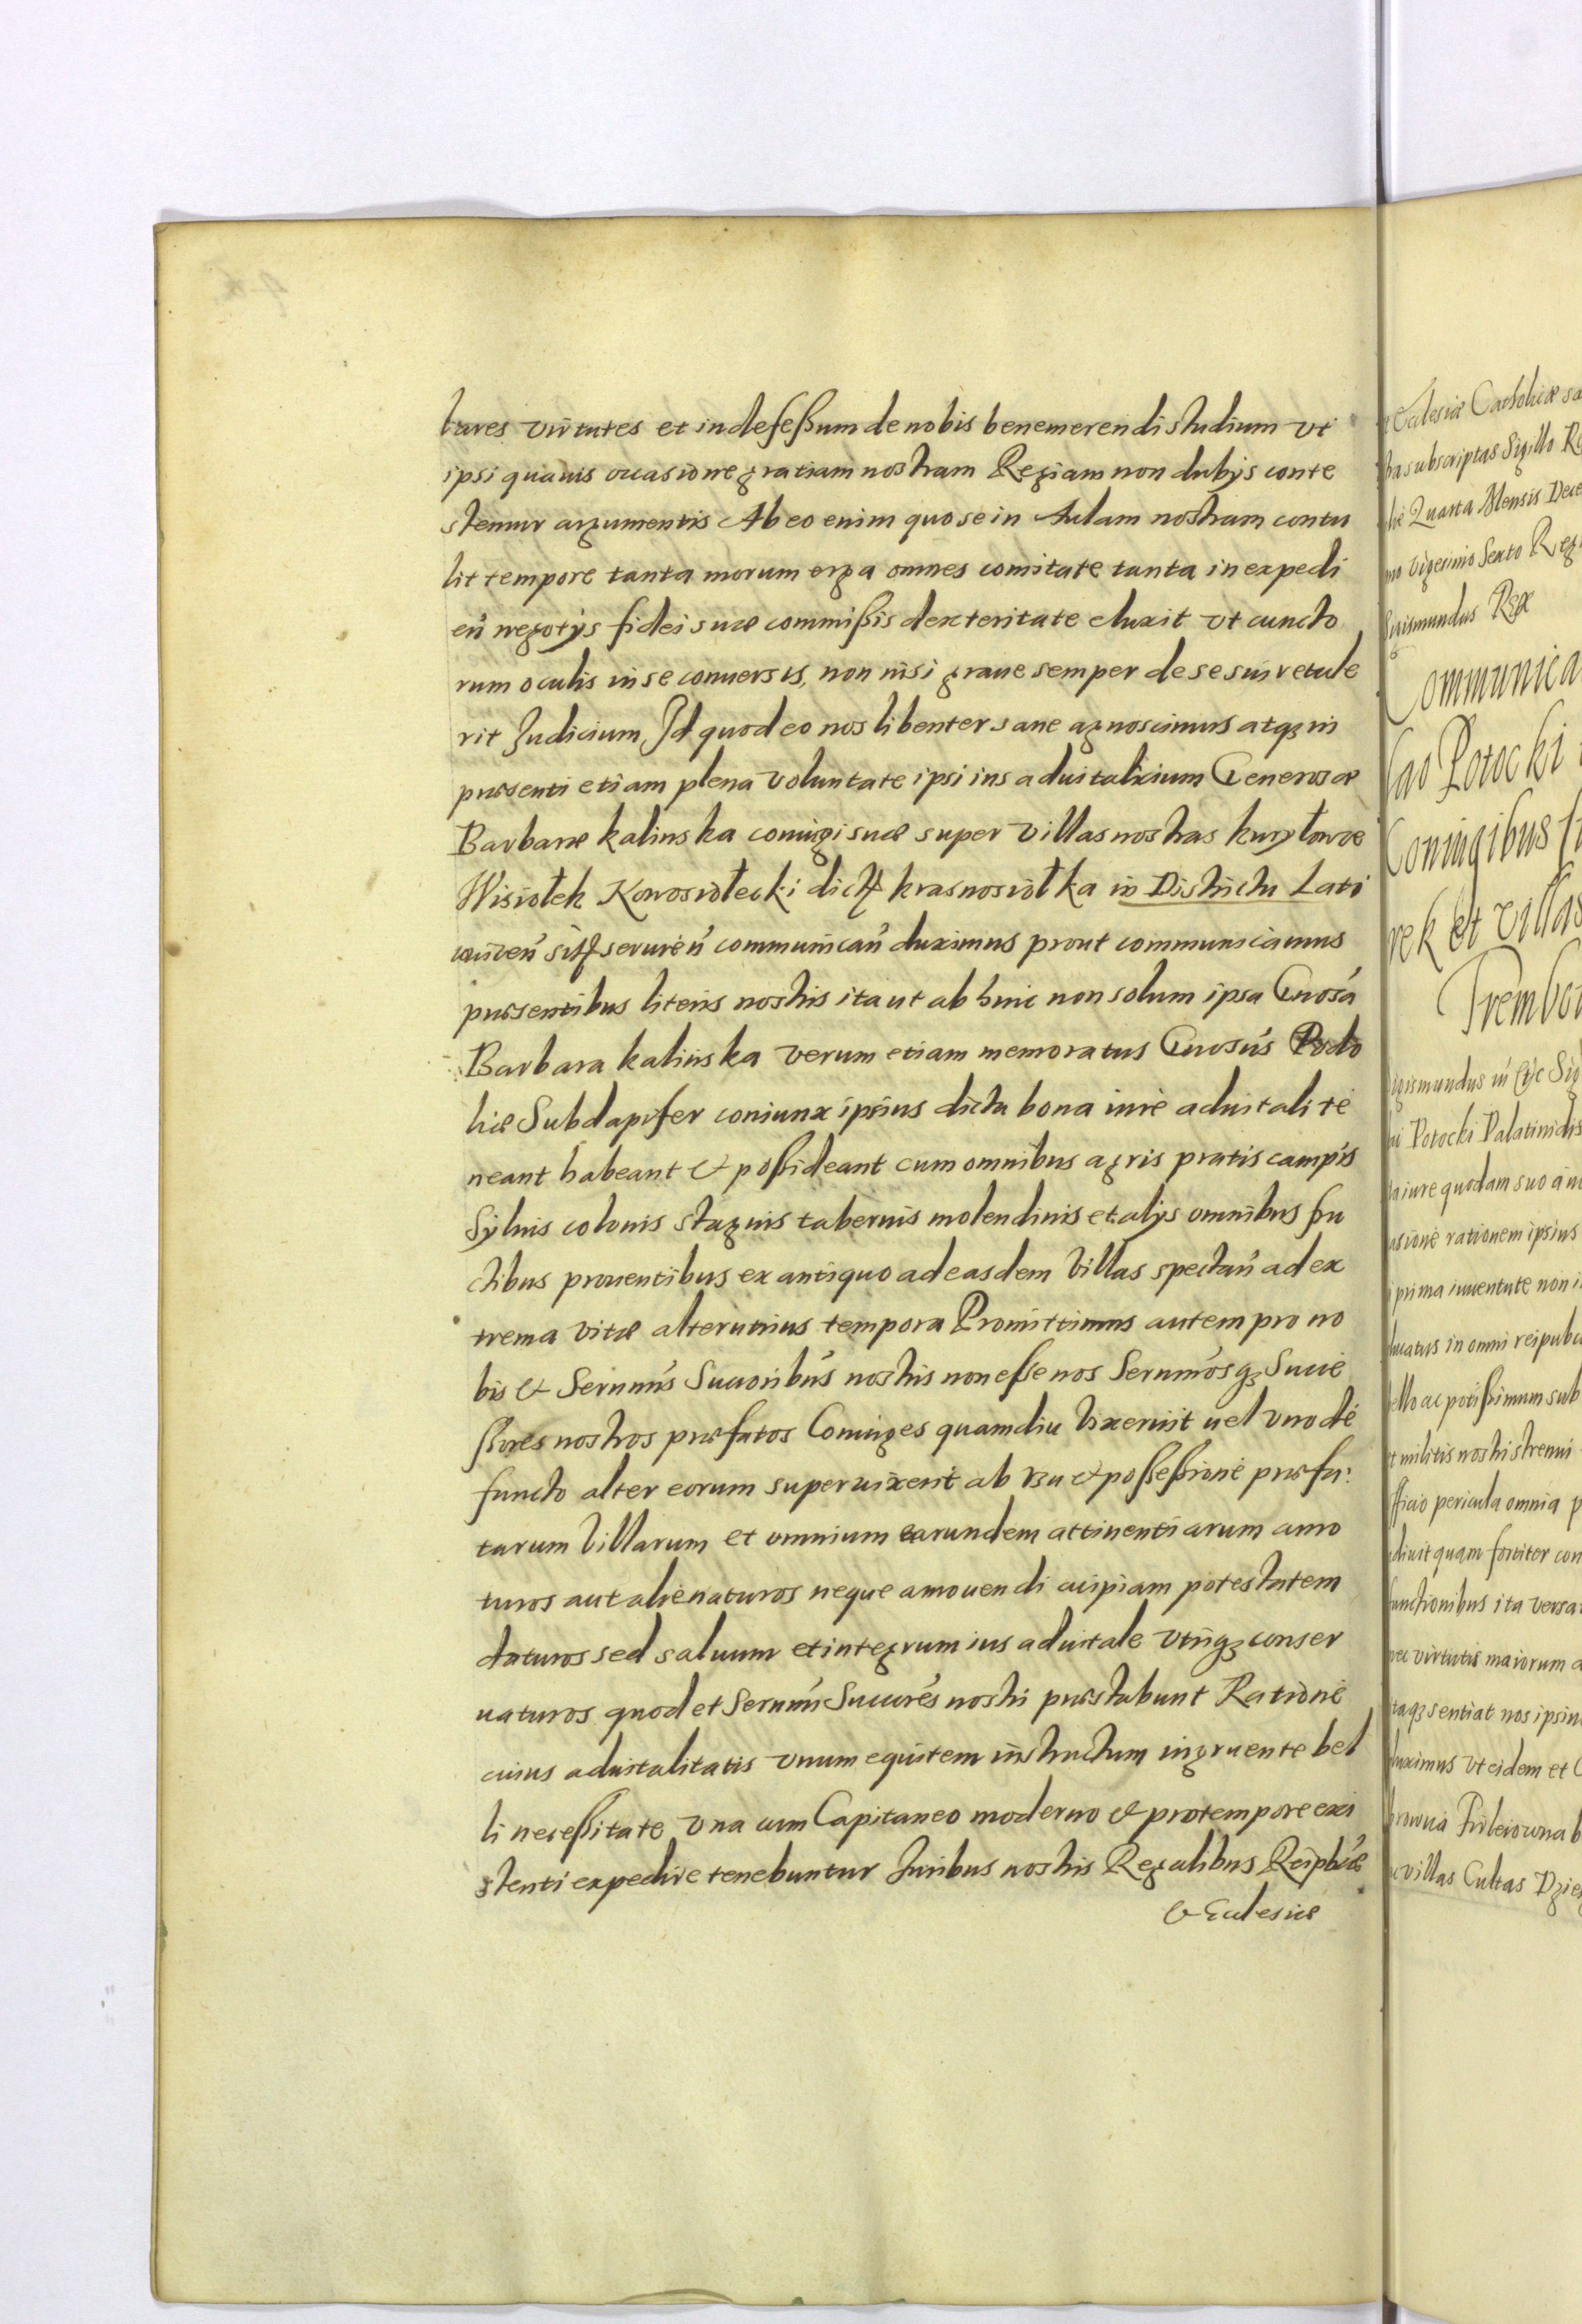 lares virtutes et indefeßum de nobis benemerendi studium vt
ipsi quauis occasione gratiam nostram Regiam non dubÿs conte
stemur argumentis Ab eo enim quo se in Aulam nostram contu
lit tempore tanta morum erga omnes comitate tanta in expedi
eń negotÿs fidei suæ commißis dexteritate eluxit vt cuncto
rum oculis in se conuersis, non nisi graue semper de se sui retule
rit Judicium, Id quod eo nos libenter sane agnoscimus atqꝫ in
præsenti etiam plena voluntate ipsi ius aduitalicium Generosæ
Barbaræ kalinska coniugi suæ super villas nostras kuryłowce
Wisiołek Kowosiołecki dict krasnosiołka in Districtu Lati
couień sit seruień communicań duximus prout communicamus
præsentibus literis nostris ita ut ab hinc non solum ipsa Gnosá
Barbara kalinska verum etiam memoratus Gnosús Podo
liæ Subdapifer coniunx ipsius dicta bona iure aduitali te
neant habeant & poßideant cum omnibus agris pratis campis
Syluis colonis stagnis tabernis molendinis et alÿs omnibus fru
ctibus prouentibus ex antiquo ad easdem Villas spectań ad ex
trema vitæ alterutrius tempora Promittimus autem pro no
bis & Sernmis Sucorībus nostris non esse nos Sernmosqꝫ Succe
ßores nostros præfatos Coniuges quamdiu vixerint uel vno de
functo alter eorum superuixerit ab vsu & posseßione præfa:
tarum Villarum et omnium earundem attinentiarum amo
turos aut alienaturos neque amouendi cuipiam potestatem
daturos sed saluum et integrum ius aduitale vtriqꝫ conser
uaturos quod et Sernmi Succrés nostri præstabunt Ratione
cuius aduitalitatis vnum equitem instructum ingruente bel
li neceßitate vna cum Capitaneo moderno & pro tempore exi
stenti expedire tenebuntur Juribus nostris Regalibus Reipbcæ
& Eclesiæ
Eclesiæ Catholicæ sa
subscriptas Sigillo Re
Quarta Mensis Dece
vigesimo Sexto Reg
Sigismundus Rex
Communica
Potocki
Coniugibus
et villas
Trembow
Potocki Palatinidis
iure quodam suo
rationem ipsius
prima iuuentute non
in omni reipub
ac potißimum sub
militis nostri strenui
officio pericula omnia p
quam fortiter con
functionibus ita versa
virtutis maiorum a
sentiat nos ipsius
duximus vt eidem et
villas Cultas